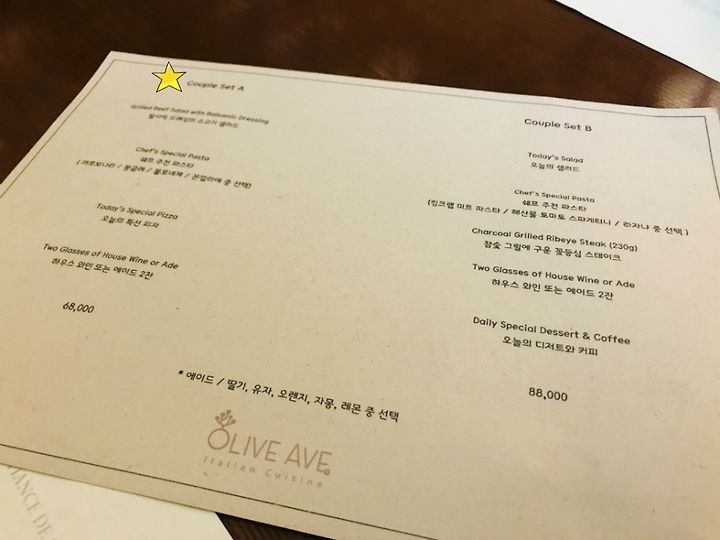 Couple Set A
Grilled Beef Salad with Balsamic Dressing
발사믹 드레싱의 소고기 샐러드
Chef's Special Pasta
쉐프 추천 파스타
(까르보나라 / 봉골레 / 볼로네제 / 감밀라에 중 선택)
Today's Special Pizza
오늘의 특선 피자
Two Glasses of House Wine or Ade
하우스 와인 또는 에이드 2잔
68,000
Couple Set B
Today's Salad
오늘의 샐러드
Chef's Special Pasta
쉐프 추천 파스타
(킹크랩 미트 파스타 / 해산물 토마토 스파게티니 / 라자냐 중 선택 )
Charcoal Grilled Ribeye Steak (230g)
참숯 그릴에 구운 꽃등심 스테이크
Two Glasses of House Wine or Ade
하우스 와인 또는 에이드 2잔
Daily Special Dessert & Coffee
오늘의 디저트와 커피
88,000
* 에이드 / 딸기, 유자, 오렌지, 자몽, 레몬 중 선택
OLIVE AVE.
Italian Cuisine